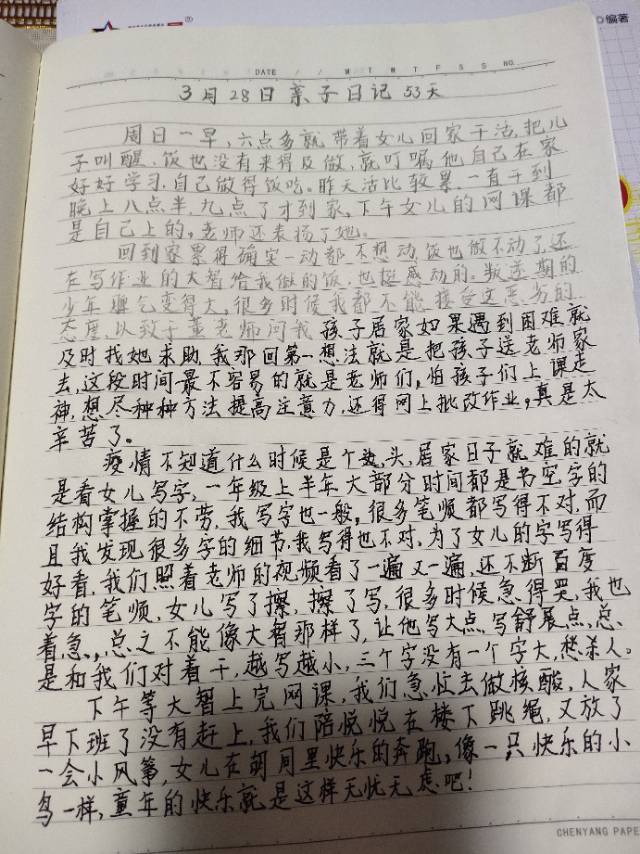 编著
DATE / / M T W T F S S NO.
3月28日亲子日记 53天
周日一早,六点多就带着女儿回家干活,把儿
子叫醒,饭也没有来得及做,就叮嘱他自己在家
好好学习,自己做得饭吃。昨天活比较累,一直干到
晚上八点半,九点了才到家,下午女儿的网课都
是自己上的,老师还表扬了她。
回到家累得确实一动都不想动,饭也做不动了,还
在写作业的大智给我做的饭,也挺感动的。叛逆期的
少年脾气变得大,很多时候我都不能接受这恶劣的
态度,以致于董老师问我孩子居家如果遇到困难就
及时找她求助,我那回第一想法就是把孩子送老师家
去,这段时间最不容易的就是老师们,怕孩子们上课走
神,想尽种种方法提高注意力,还得网上批改作业,真是太
辛苦了。
疫情不知道什么时候是个头,居家日子就难的就
是看女儿写字,一年级上半年大部分时间都是书空字的
结构掌握的不劳,我写字也一般,很多笔顺都写得不对,而
且我发现很多字的细节,我写得也不对,为了女儿的字写得
好看,我们照着老师的视频看了一遍又一遍,还不断百度
字的笔顺,女儿写了擦,擦了写,很多时候急得哭,我也
着急,总之不能像大智那样了,让他写大点,写舒展点,总
是和我们对着干,越写越小,三个字没有一个字大,愁杀人。
下午等大智上完网课,我们急忙去做核酸,人家
早下班了没有赶上,我们陪悦悦在楼下跳绳,又放了
一会小风筝,女儿在胡同里快乐的奔跑,像一只快乐的小
鸟一样,童年的快乐就是这样无忧无虑吧!
CHENYANG PAPE